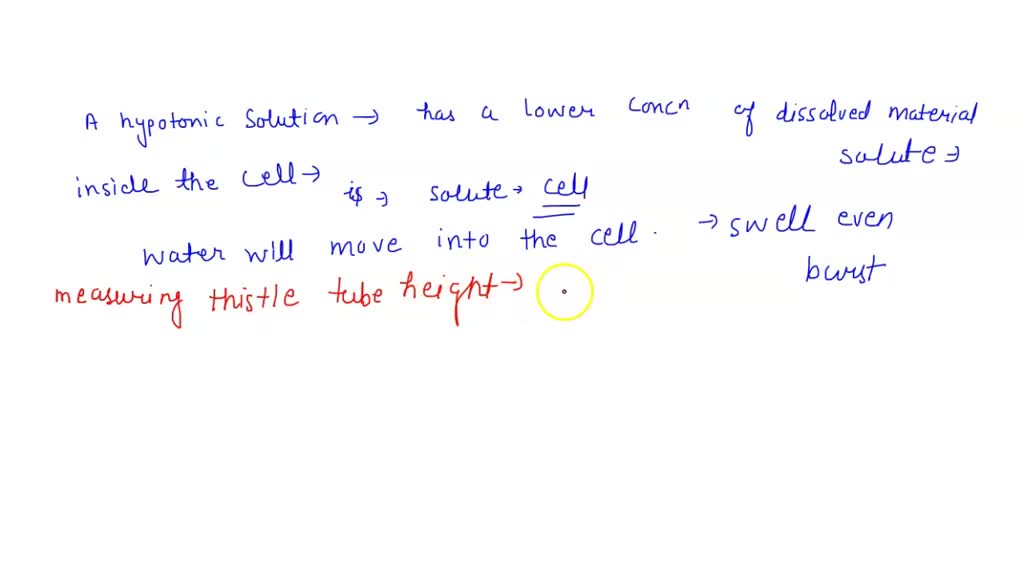 A hypotonic Solution → has a lower concn of dissolved material
solute →
inside the cell → is → solute → cell
water will move into the cell. → swell even
burst
measuring thistle tube height →